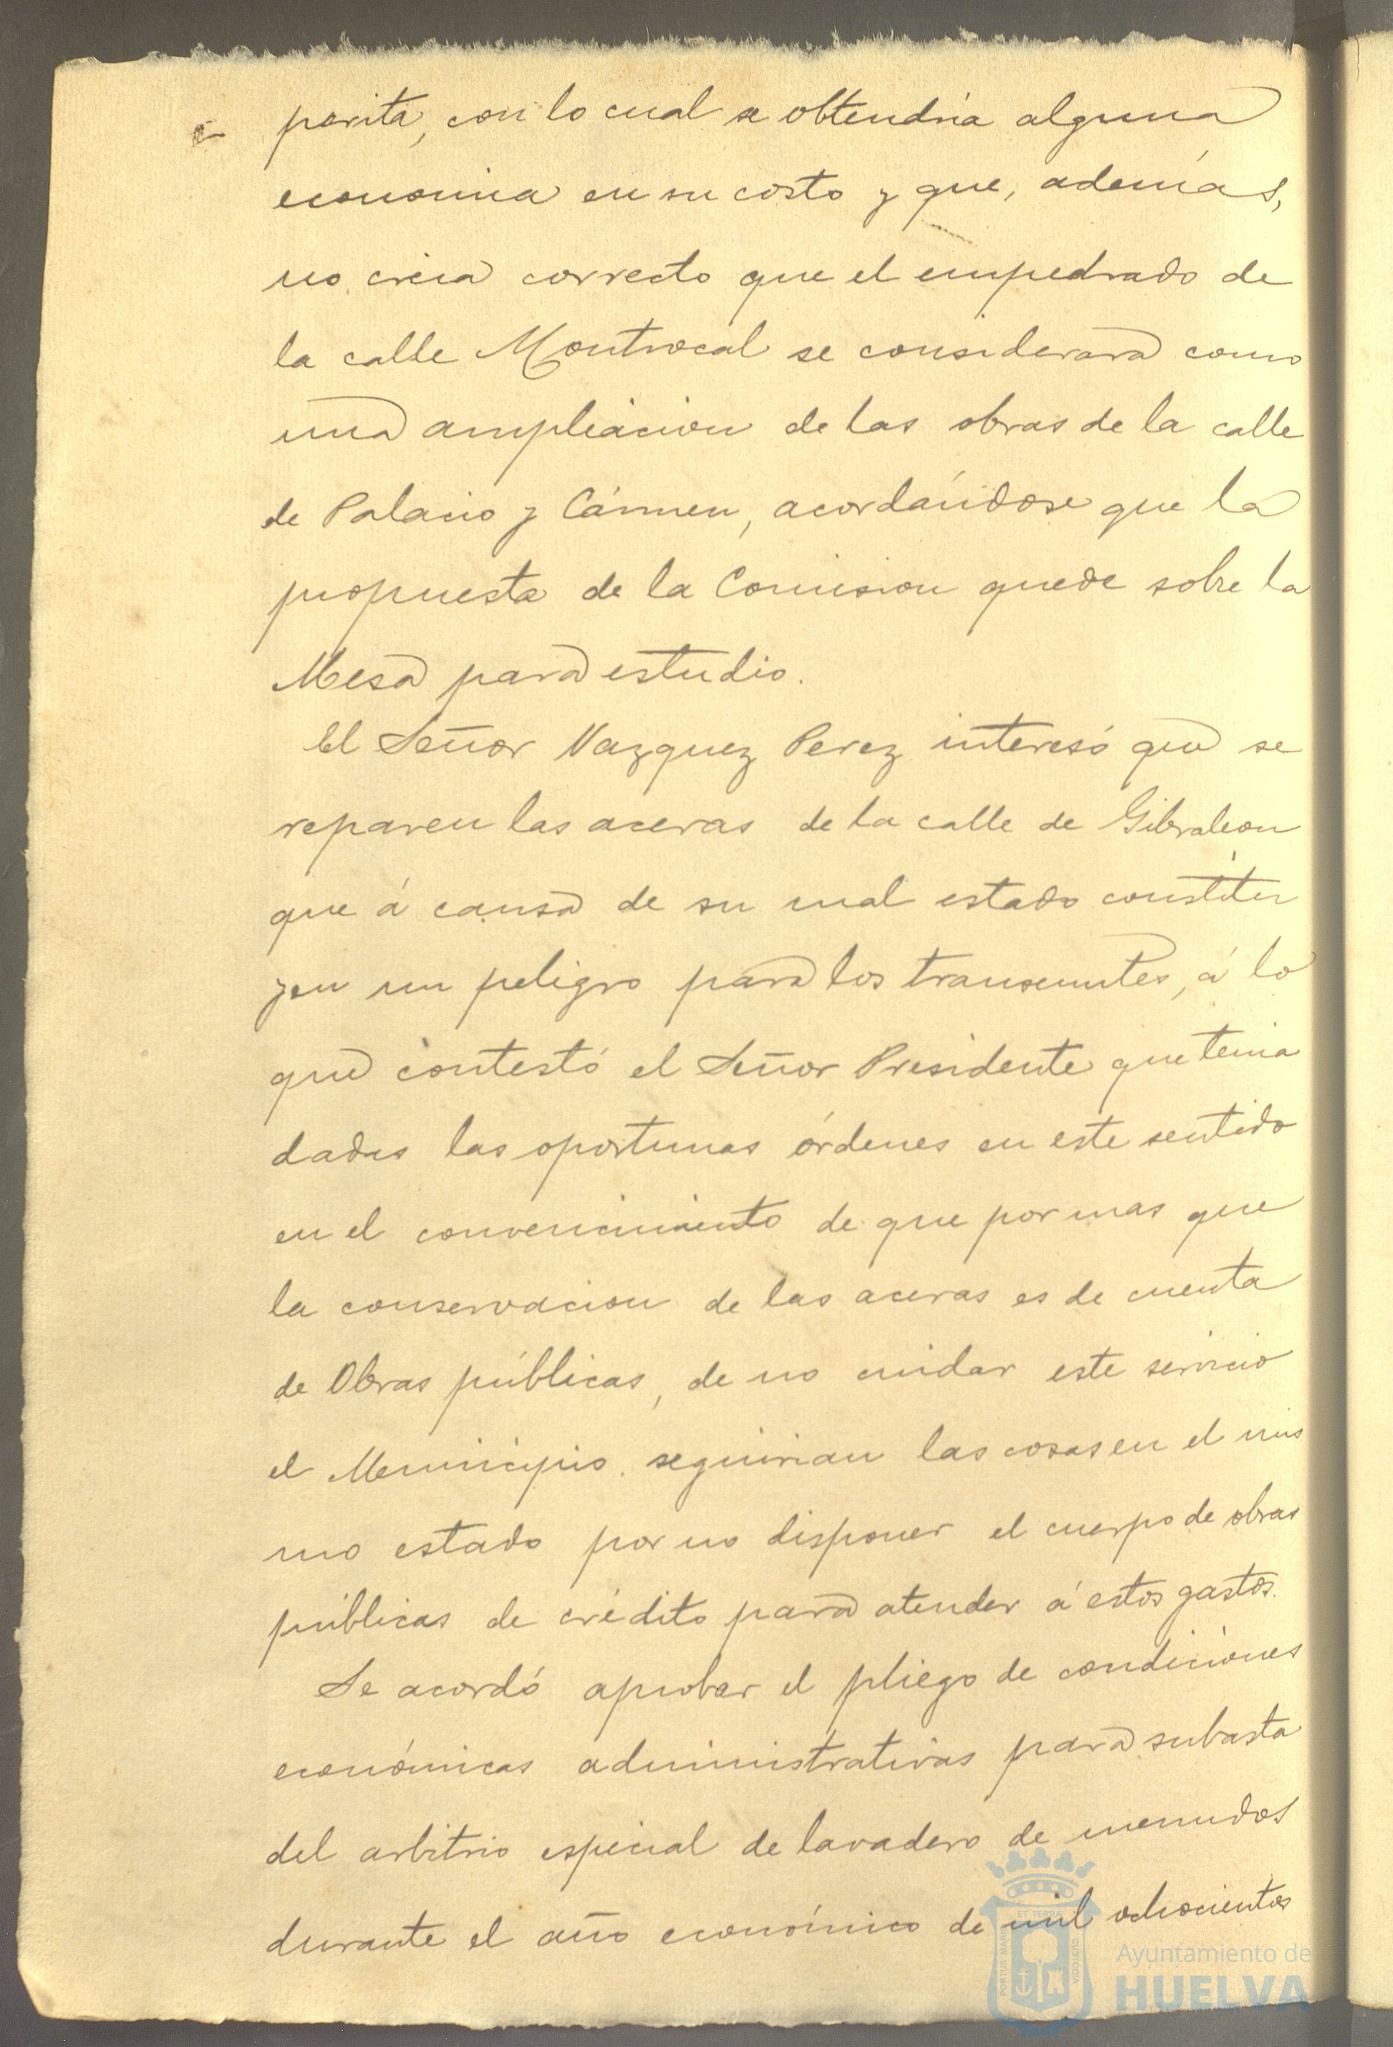 parita, con lo cual se obtendria alguna
economia en su costo y que, además,
no creia correcto que el empedrado de
la calle Montrocal se considerara como
una ampliacion de las obras de la calle
de Palacio y Cármen, acordándose que la
propuesta de la Comision quede sobre la
Mesa para estudio.
El Señor Vazquez Perez interesó que se
reparen las aceras de la calle de Gibraleon
que á causa de su mal estado constitu
yen un peligro para los transeuntes, á lo
que contestó el Señor Presidente que tenia
dadas las oportunas órdenes en este sentido
en el convencimiento de que por mas que
la conservacion de las aceras es de cuenta
de Obras públicas, de no cuidar este servicio
el Municipio seguirian las cosas en el mis
mo estado por no disponer el cuerpo de obras
públicas de crédito para atender á estos gastos.
Se acordó aprobar el pliego de condiciones
económicas administrativas para subasta
del arbitrio especial de lavadero de menudos
durante el año económico de mil ochocientos
Ayuntamiento de
HUELVA